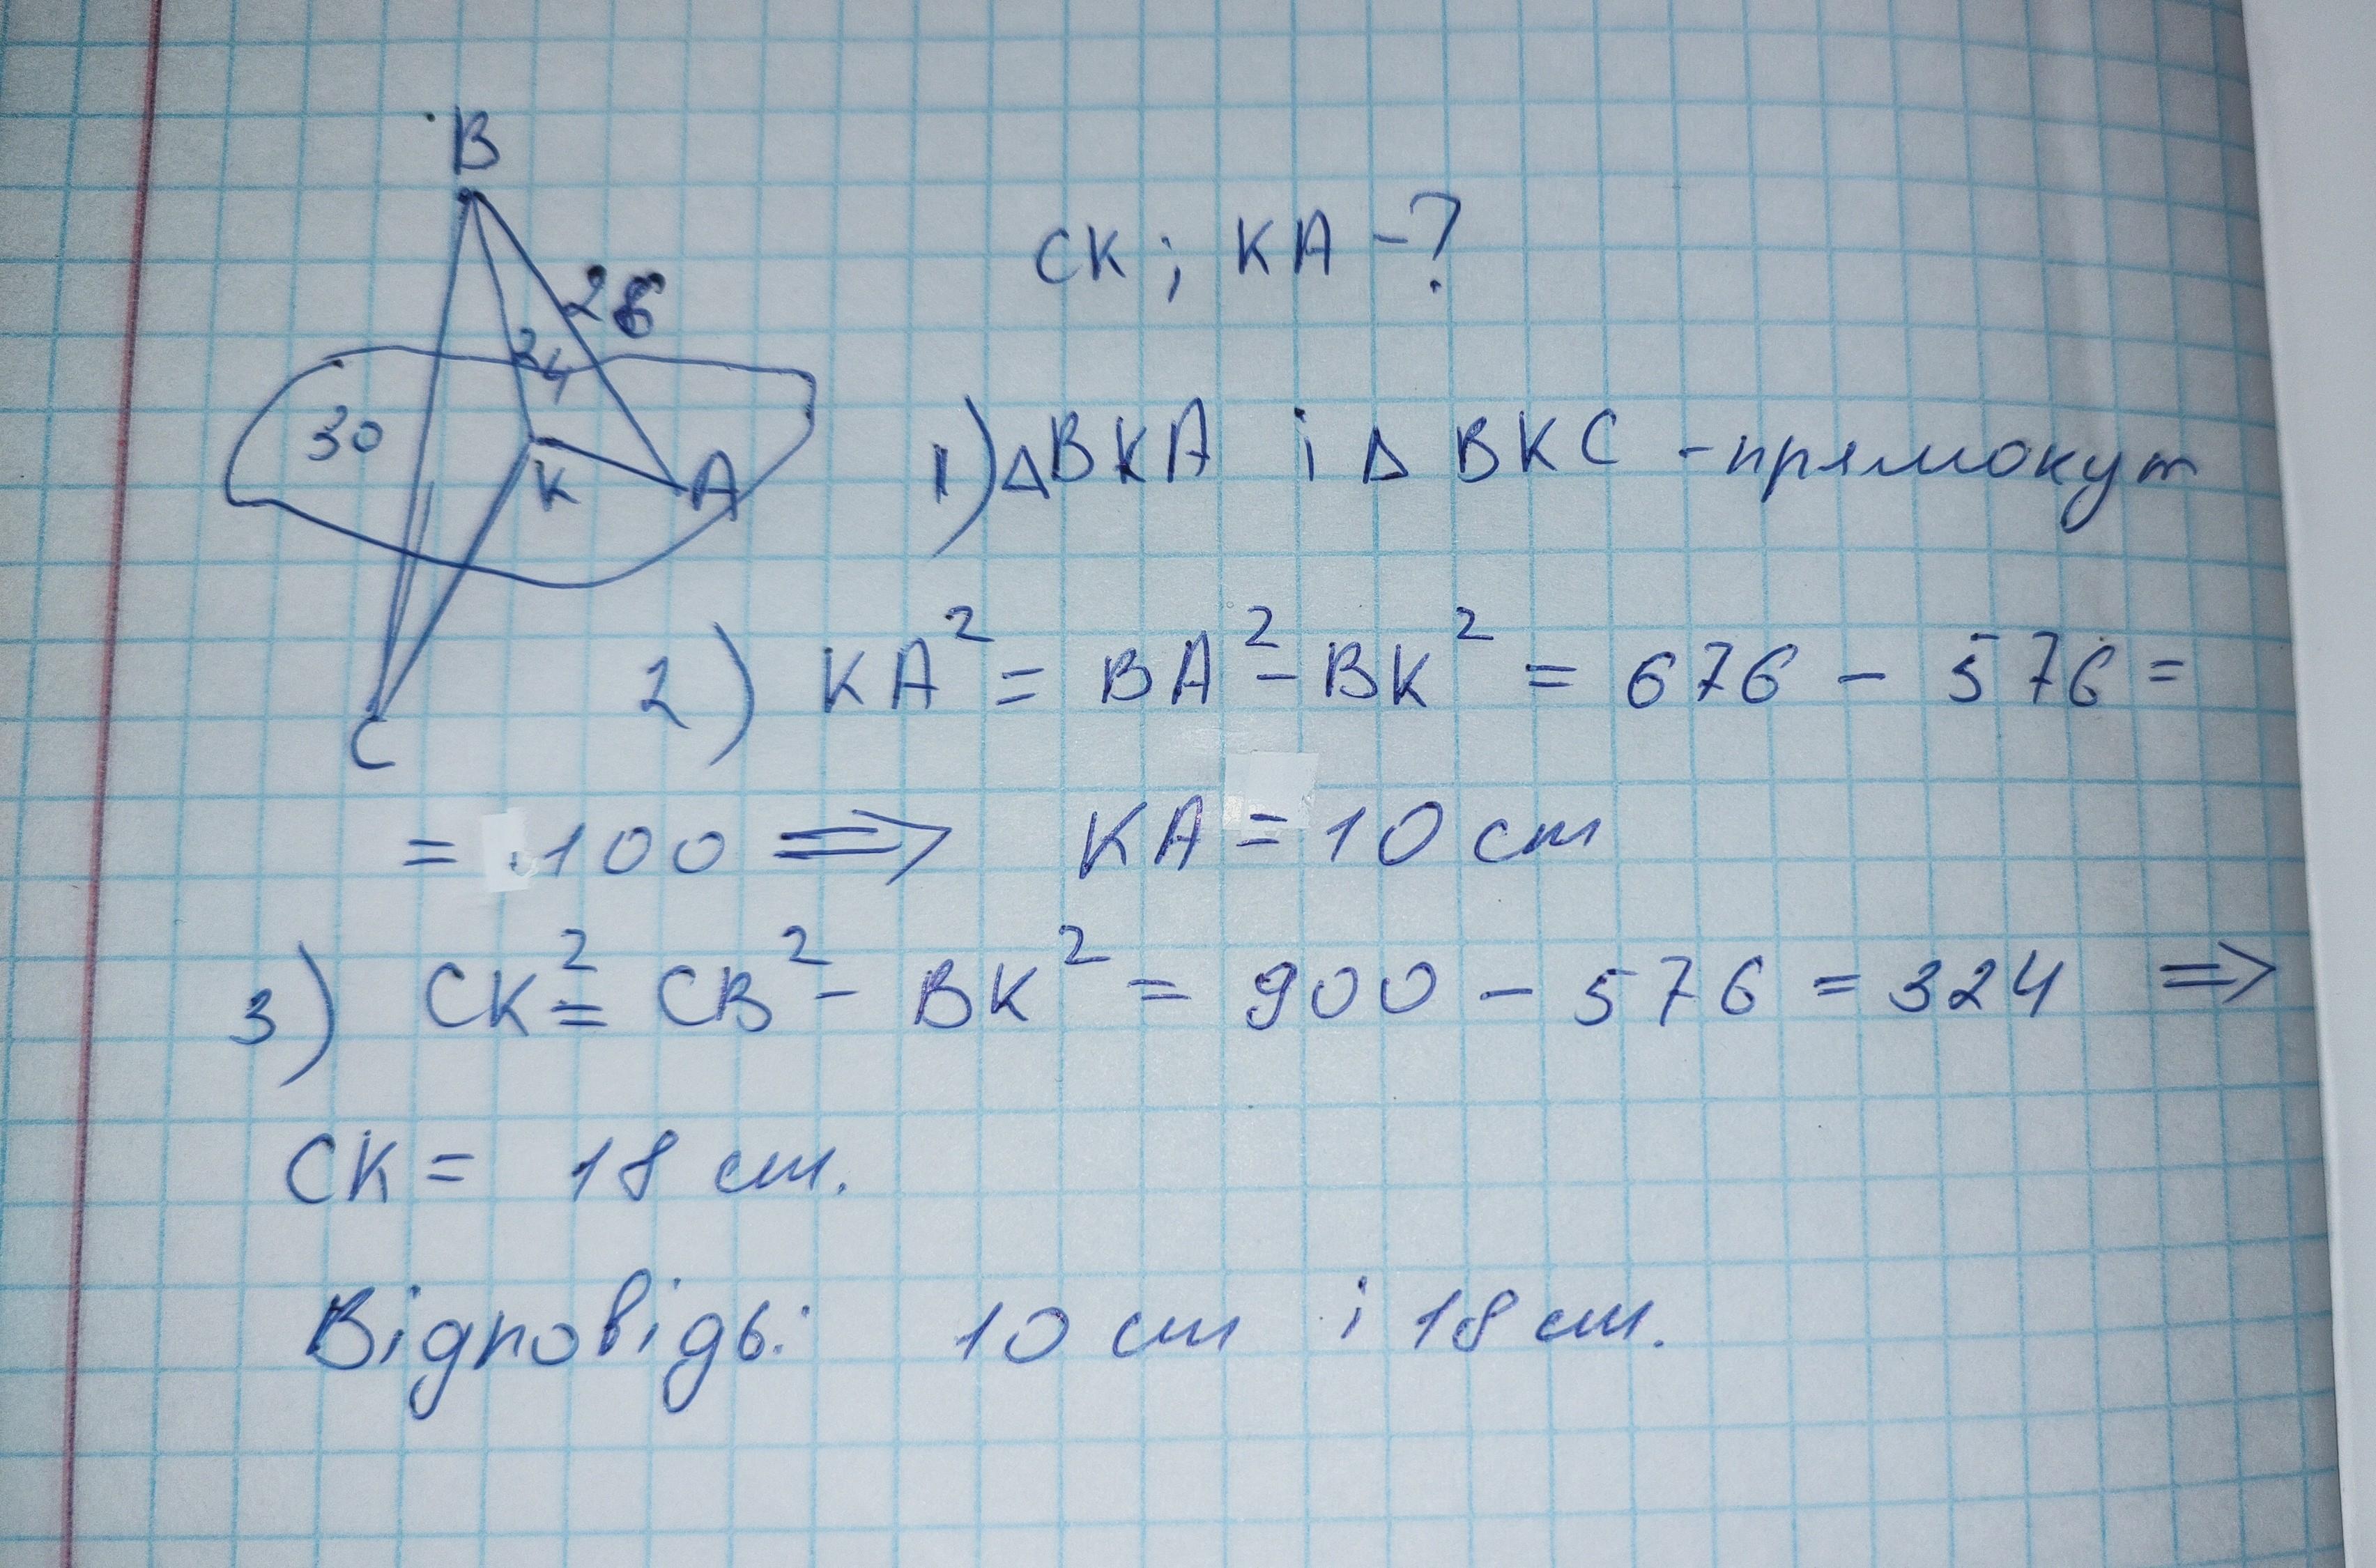 B
CK; KA - ?
26
24
30
K
A
1) △BKA і △BKC - прямокут
C
2) KA² = BA² - BK² = 676 - 576 =
= 100 => KA = 10 см
3) CK² = CB² - BK² = 900 - 576 = 324 =>
CK = 18 см.
Відповідь: 10 см і 18 см.